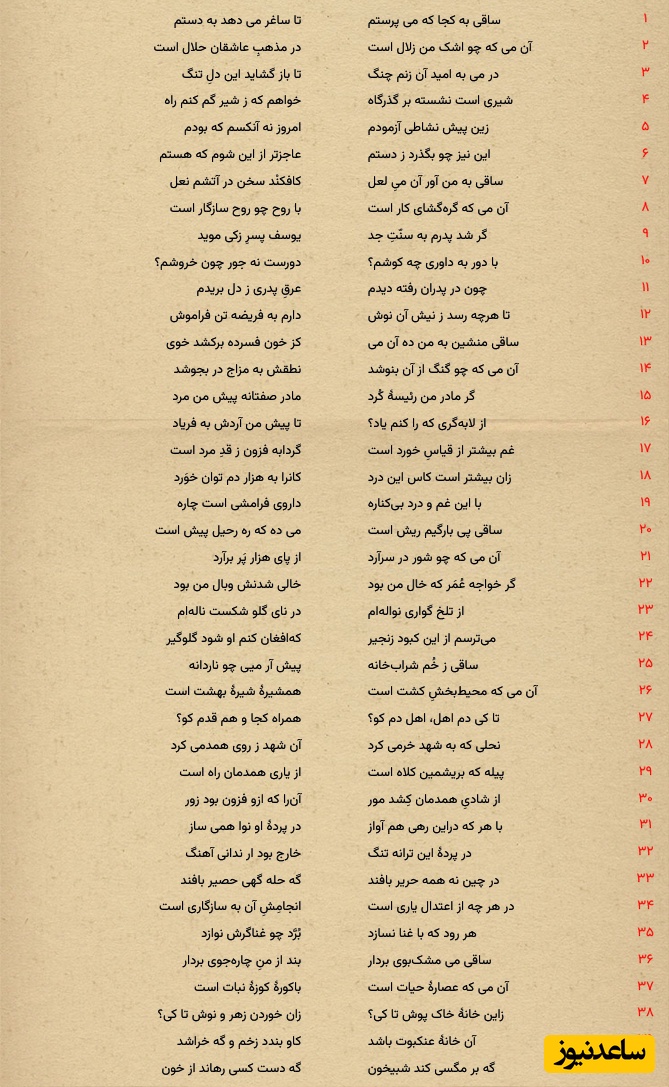 ۱ ساقی به کجا که می پرستم تا ساغر می دهد به دستم
۲ آن می که چو اشک من زلال است در مذهبِ عاشقان حلال است
۳ در می به امید آن زنم چنگ تا باز گشاید این دلِ تنگ
۴ شیری است نشسته بر گذرگاه خواهم که ز شیر گم کنم راه
۵ زین پیش نشاطی آزمودم امروز نه آنکسم که بودم
۶ این نیز چو بگذرد ز دستم عاجزتر از این شوم که هستم
۷ ساقی به من آور آن میِ لعل کافکنْد سخن در آتشم نعل
۸ آن می که گره‌گشای کار است با روح چو روح سازگار است
۹ گر شد پدرم به سنّتِ جد یوسف پسرِ زکی موید
۱۰ با دور به داوری چه کوشم؟ دورست نه جور چون خروشم؟
۱۱ چون در پدران رفته دیدم عرقِ پدری ز دل بریدم
۱۲ تا هرچه رسد ز نیش آن نوش دارم به فریضه تن فراموش
۱۳ ساقی منشین به من ده آن می کز خون فسرده برکشد خوی
۱۴ آن می که چو گنگ از آن بنوشد نطقش به مزاج در بجوشد
۱۵ گر مادر من رئیسهٔ کُرد مادر صفتانه پیش من مرد
۱۶ از لابه‌گری که را کنم یاد؟ تا پیش من آردش به فریاد
۱۷ غم بیشتر از قیاسِ خورد است گردابه فزون ز قدِ مرد است
۱۸ زان بیشتر است کاس این درد کانرا به هزار دم توان خوَرد
۱۹ با این غم و درد بی‌کناره داروی فرامشی است چاره
۲۰ ساقی پی بارگیم ریش است می ده که ره رحیل پیش است
۲۱ آن می که چو شور در سرآرد از پای هزار پَر برآرد
۲۲ گر خواجه عُمَر که خال من بود خالی شدنش وبال من بود
۲۳ از تلخ گواری نواله‌ام در نای گلو شکست ناله‌ام
۲۴ می‌ترسم از این کبود زنجیر که‌افغان کنم او شود گلوگیر
۲۵ ساقی ز خُم شراب‌خانه پیش آر میی چو ناردانه
۲۶ آن می که محیط‌بخشِ کشت است همشیرهٔ شیرهٔ بهشت است
۲۷ تا کی دم اهل، اهل دم کو؟ همراه کجا و هم قدم کو؟
۲۸ نحلی که به شهد خرمی کرد آن شهد ز روی همدمی کرد
۲۹ پیله که بریشمین کلاه است از یاری همدمان راه است
۳۰ از شادیِ همدمان کِشد مور آن‌را که ازو فزون بود زور
۳۱ با هر که دراین رهی هم آواز در پردهٔ او نوا همی ساز
۳۲ در پردهٔ این ترانه تنگ خارج بود ار ندانی آهنگ
۳۳ در چین نه همه حریر بافند گه حله گهی حصیر بافند
۳۴ در هر چه از اعتدال یاری است انجامِشِ آن به سازگاری است
۳۵ هر رود که با غنا نسازد بُرَّد چو غناگرش نوازد
۳۶ ساقی می مشک‌بوی بردار بند از منِ چاره‌جوی بردار
۳۷ آن می که عصارهٔ حیات است باکورهٔ کوزهٔ نبات است
۳۸ زاین خانهٔ خاک پوش تا کی؟ زان خوردن زهر و نوش تا کی؟
آن خانهٔ عنکبوت باشد کاو بندد زخم و گه خراشد
گه بر مگسی کند شبیخون گه دست کسی رهاند از خون
ساعدنیوز